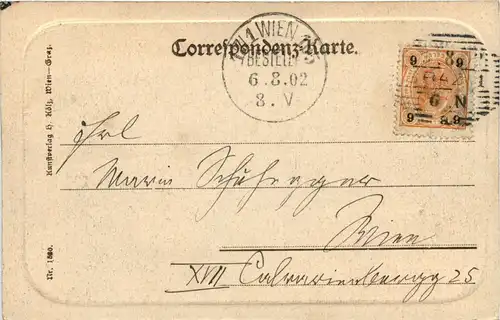 Correspondenz-Karte.
WIEN
BESTELLT
6.8.02
8.V
9 9
9 9
Kunstverlag H. Kölz, Wien—Graz.
Nr. 1880.
Frl
Marie
Wien
XVII Calvarienbergg 25